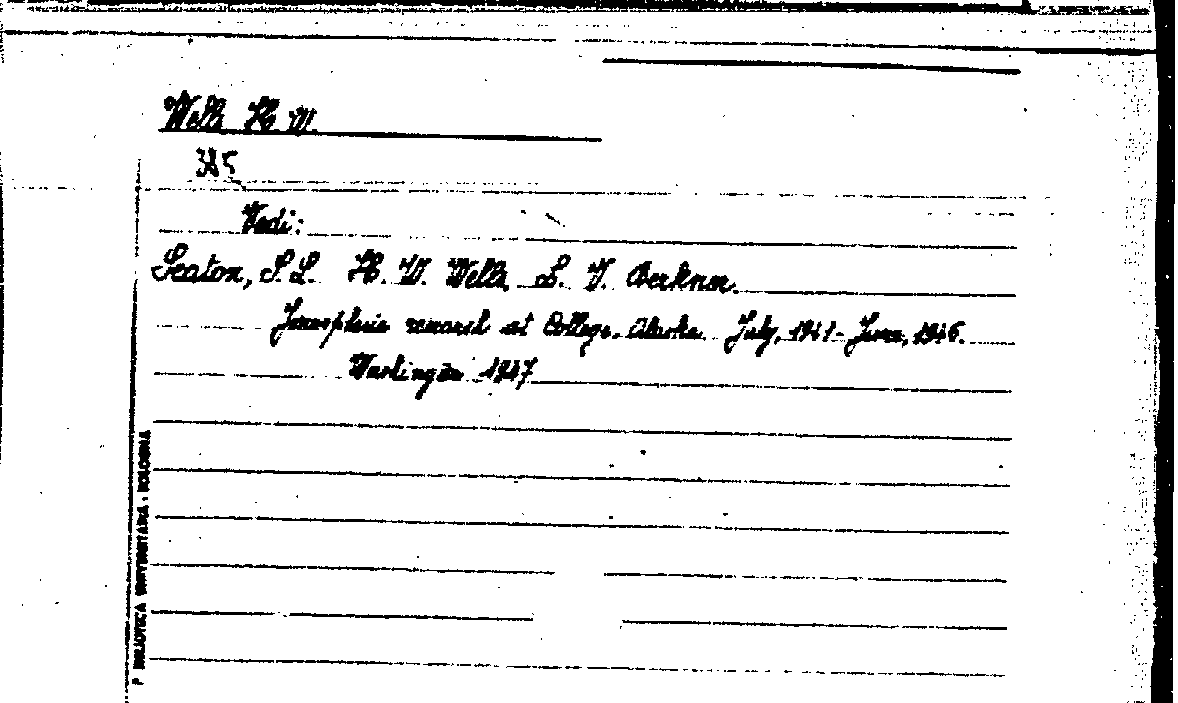 Wells H. W.
385
Vedi:
Seaton, S.L. H. W. Wells L. V. Berkner.
Ionospheric research at College, Alaska July, 1941 - June, 1946.
Washington 1947
BIBLIOTECA UNIVERSITARIA - BOLOGNA